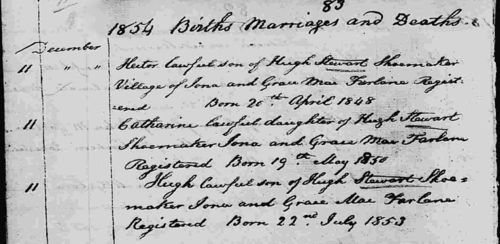 83
1854 Births Marriages and Deaths
December
11 " " Hector lawful son of Hugh Stewart Shoemaker
Village of Iona and Grace Mac Farlane Regist-
ered Born 20th April 1848
11 Catharine lawful daughter of Hugh Stewart
Shoemaker Iona and Grace Mac Farlane
Registered Born 19th May 1850
11 Hugh lawful son of Hugh Stewart Shoe-
maker Iona and Grace Mac Farlane
Registered Born 22nd July 1853